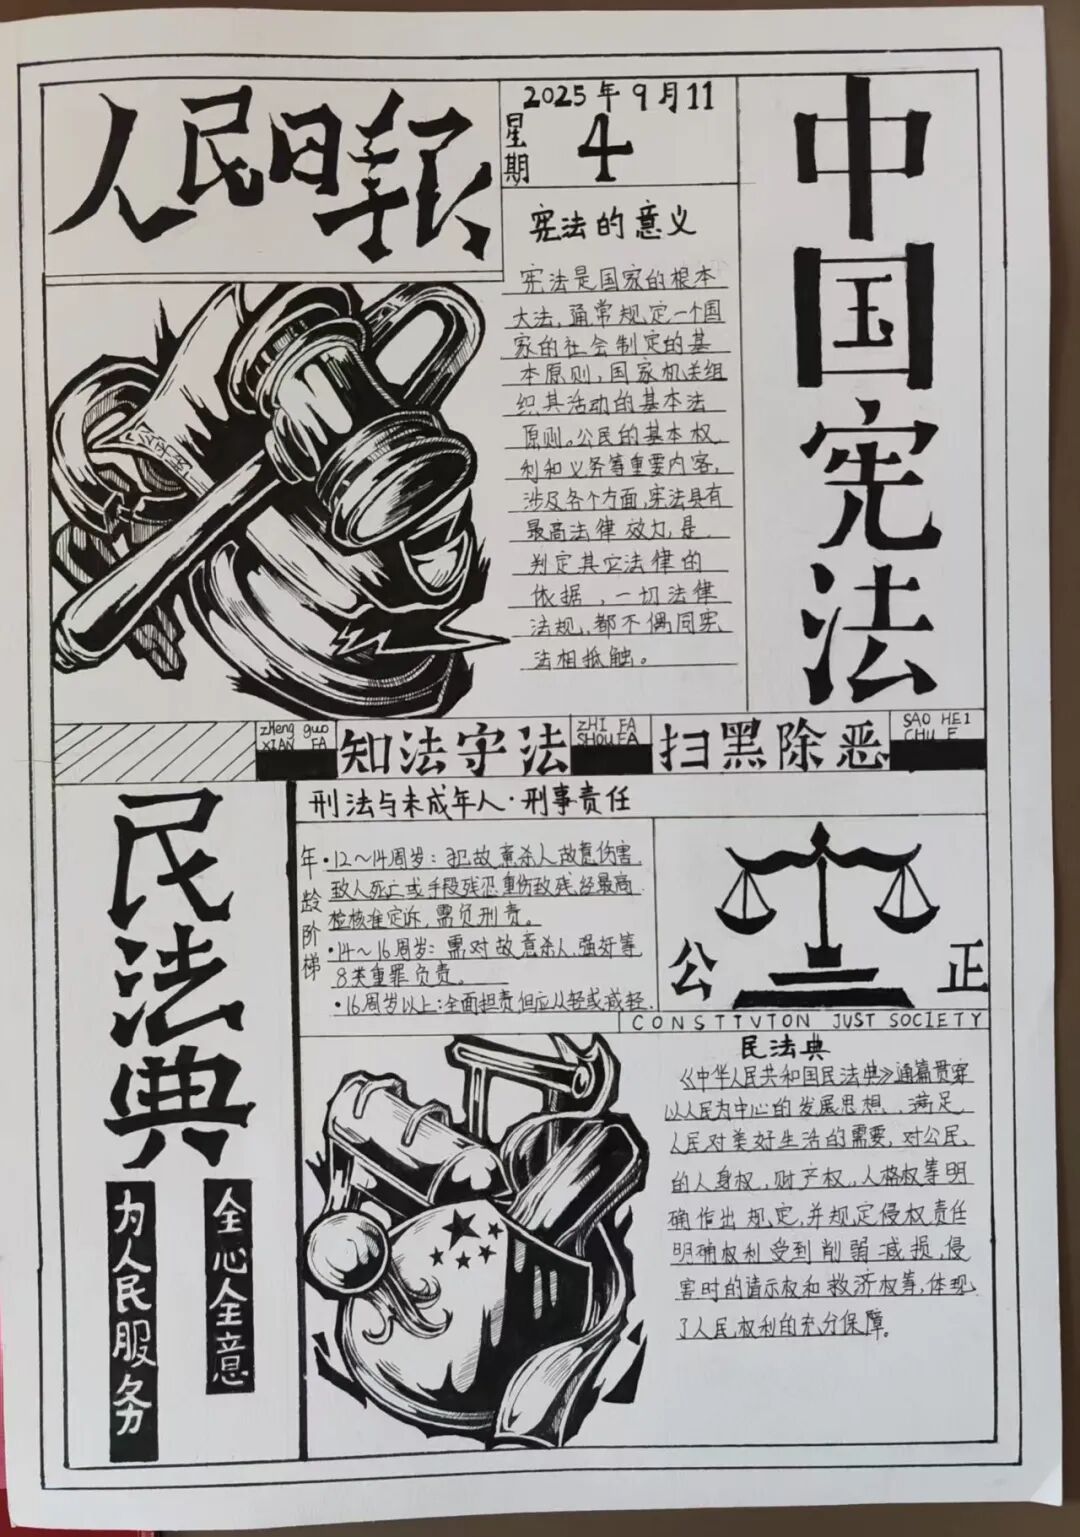 人民日报
2025年9月11
星期
4
宪法的意义
宪法是国家的根本
大法,通常规定一个国
家的社会制定的基
本原则,国家机关组
织其活动的基本法
原则。公民的基本权
利和义务等重要内容,
涉及各个方面,宪法具有
最高法律效力,是
判定其它法律的
依据,一切法律
法规,都不偶同宪
法相抵触。
中国宪法
zHeng guo
XIAN FA
知法守法
ZHI FA
SHOU FA
扫黑除恶
SAO HEI
CHU E
民法典
全心全意
为人民服务
刑法与未成年人·刑事责任
年龄阶梯
·12~14周岁:犯故意杀人故意伤害
致人死亡或手段残忍重伤致残经最高
检核准定诉,需负刑责。
·14~16周岁:需对故意杀人、强奸等
8类重罪负责。
·16周岁以上:全面担责但应从轻或减轻.
公正
CONSTTVTON JUST SOCIETY
民法典
《中华人民共和国民法典》通篇贯穿
以人民为中心的发展思想、满足
人民对美好生活的需要,对公民
的人身权,财产权,人格权等明
确作出规定,并规定侵权责任
明确权利受到削弱减损,侵
害时的请示权和救济权等,体现
了人民权利的充分保障。